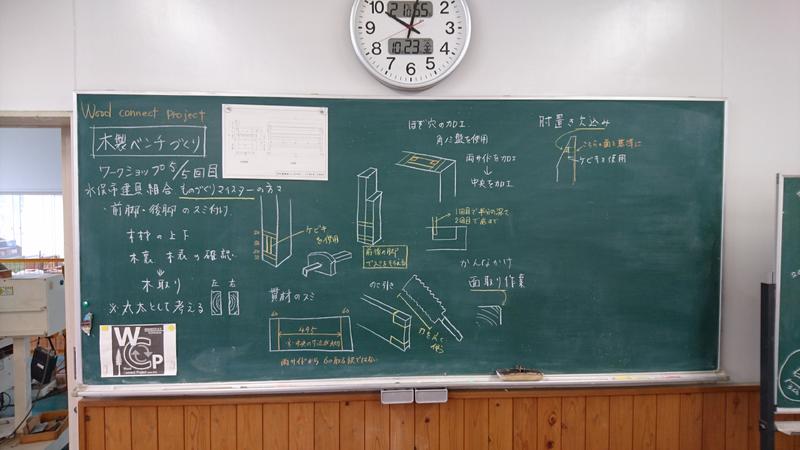 Wood connect PROJECT
木製ベンチづくり
ワークショップ 5/5回目
水俣市建具組合 ものづくりマイスターの方々
・前脚・後脚のスミ付け
木材の上下
木裏 木表の確認
木取り
※丸太として考える
左 右
ケビキを使用
前後の脚
貫材のスミ
60 60
495
両サイドから60取る訳ではない
のこ引き
ほぞ穴の加工
角ノミ盤を使用
両サイドを加工
↓
中央を加工
1回目で半分の深さ
2回目で底まで
かんなかけ
面取り作業
肘置き欠込み
こちらの面を基準に
ケビキを使用
WCP
Wood connect Project
12
1
2
3
4
8
9
10
11
10:23